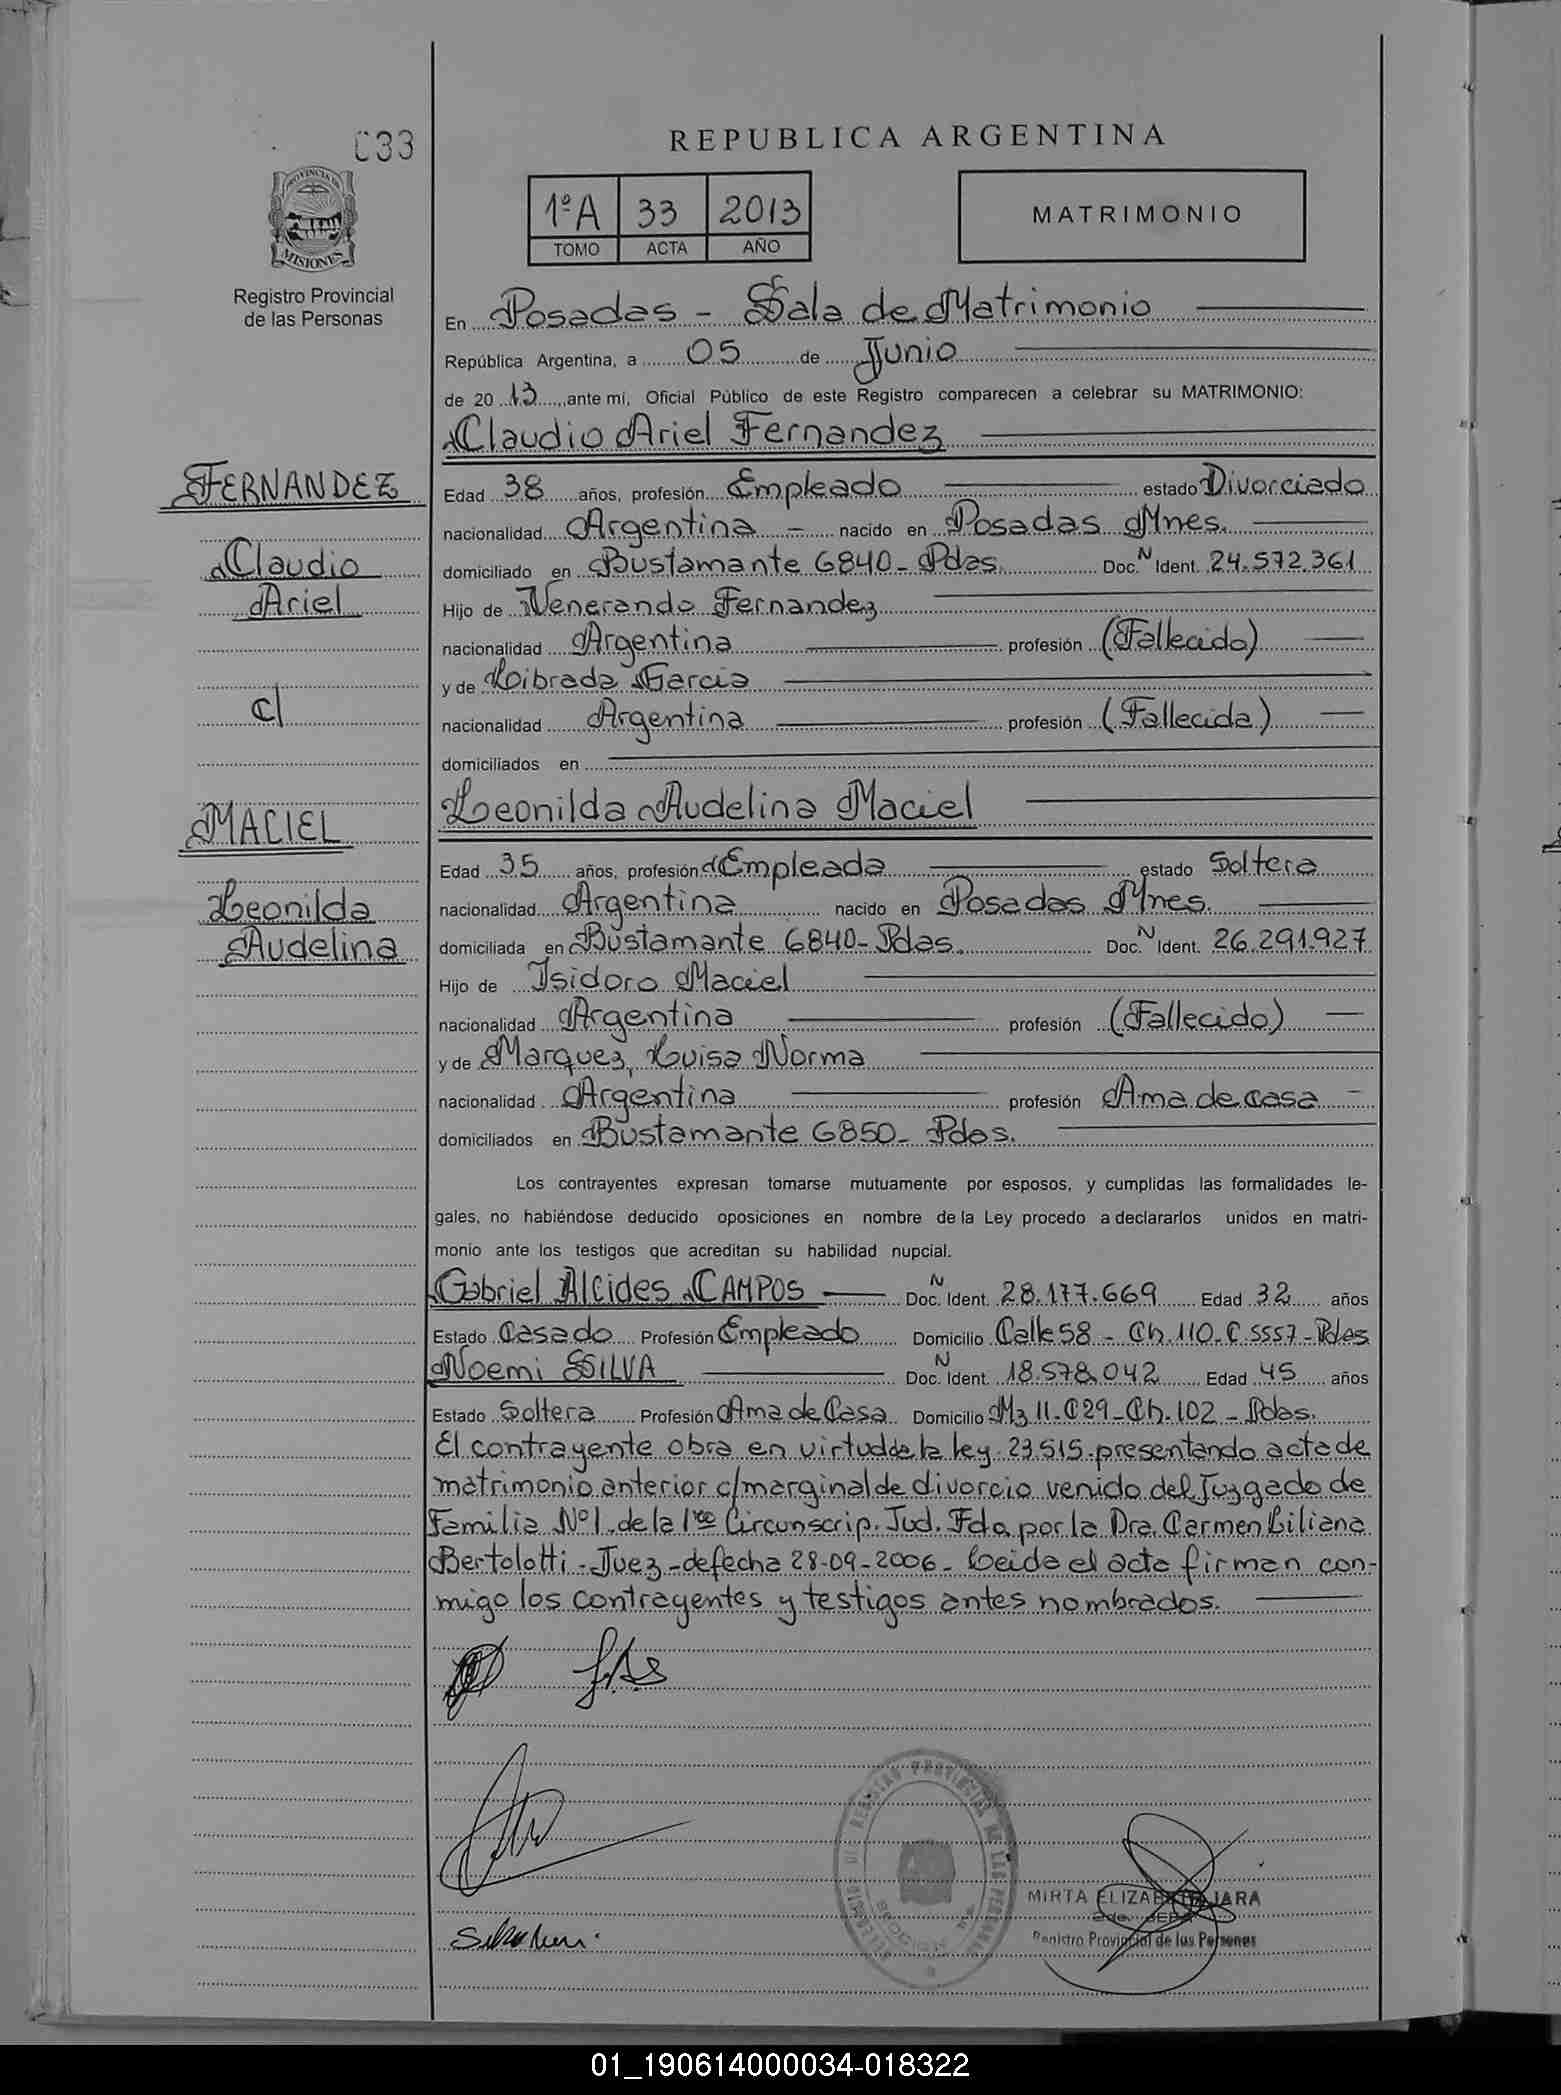 033
REPUBLICA ARGENTINA
PROVINCIA DE
MISIONES
Registro Provincial
de las Personas
1ºA 33 2013
TOMO ACTA AÑO
MATRIMONIO
En Posadas - Sala de Matrimonio
República Argentina, a 05 de Junio
de 20 13 ante mí, Oficial Público de este Registro comparecen a celebrar su MATRIMONIO:
Claudio Ariel Fernandez
FERNANDEZ
Claudio
Ariel
c/
MACIEL
Leonilda
Audelina
Edad 38 años, profesión Empleado estado Divorciado
nacionalidad Argentina - nacido en Posadas Mnes.
domiciliado en Bustamante 6840- Pdas. Doc. N Ident. 24.572.361
Hijo de Venerando Fernandez
nacionalidad Argentina profesión (Fallecido)
y de Librada Garcia
nacionalidad Argentina profesión (Fallecida)
domiciliados en
Leonilda Audelina Maciel
Edad 35 años, profesión Empleada estado Soltera
nacionalidad Argentina nacido en Posadas Mnes.
domiciliada en Bustamante 6840- Pdas. Doc. N Ident. 26.291.927
Hijo de Isidoro Maciel
nacionalidad Argentina profesión (Fallecido)
y de Marquez, Luisa Norma
nacionalidad Argentina profesión Ama de casa -
domiciliados en Bustamante 6850- Pdas.
Los contrayentes expresan tomarse mutuamente por esposos, y cumplidas las formalidades le-
gales, no habiéndose deducido oposiciones en nombre de la Ley procedo a declararlos unidos en matri-
monio ante los testigos que acreditan su habilidad nupcial.
Gabriel Alcides CAMPOS Doc. N Ident. 28.177.669 Edad 32 años
Estado Casado Profesión Empleado Domicilio Calle 58 - Ch. 110- C. 5557- Pdas
Noemi SILVA Doc. N Ident. 18.578.042 Edad 45 años
Estado Soltera Profesión Ama de Casa Domicilio Mz 11- C29- Ch. 102 - Pdas.
El contrayente obra en virtud de la ley 23.515 presentando acta de
matrimonio anterior c/marginal de divorcio venido del Juzgado de
Familia Nº1 de la 1ra Circunscrip. Jud. Fda por la Dra. Carmen Liliana
Bertolotti - Juez - de fecha 28-09-2006- Leida el acta firman con-
migo los contrayentes y testigos antes nombrados.
MIRTA ELIZABETH JARA
Registro Provincial de las Personas
01_190614000034-018322